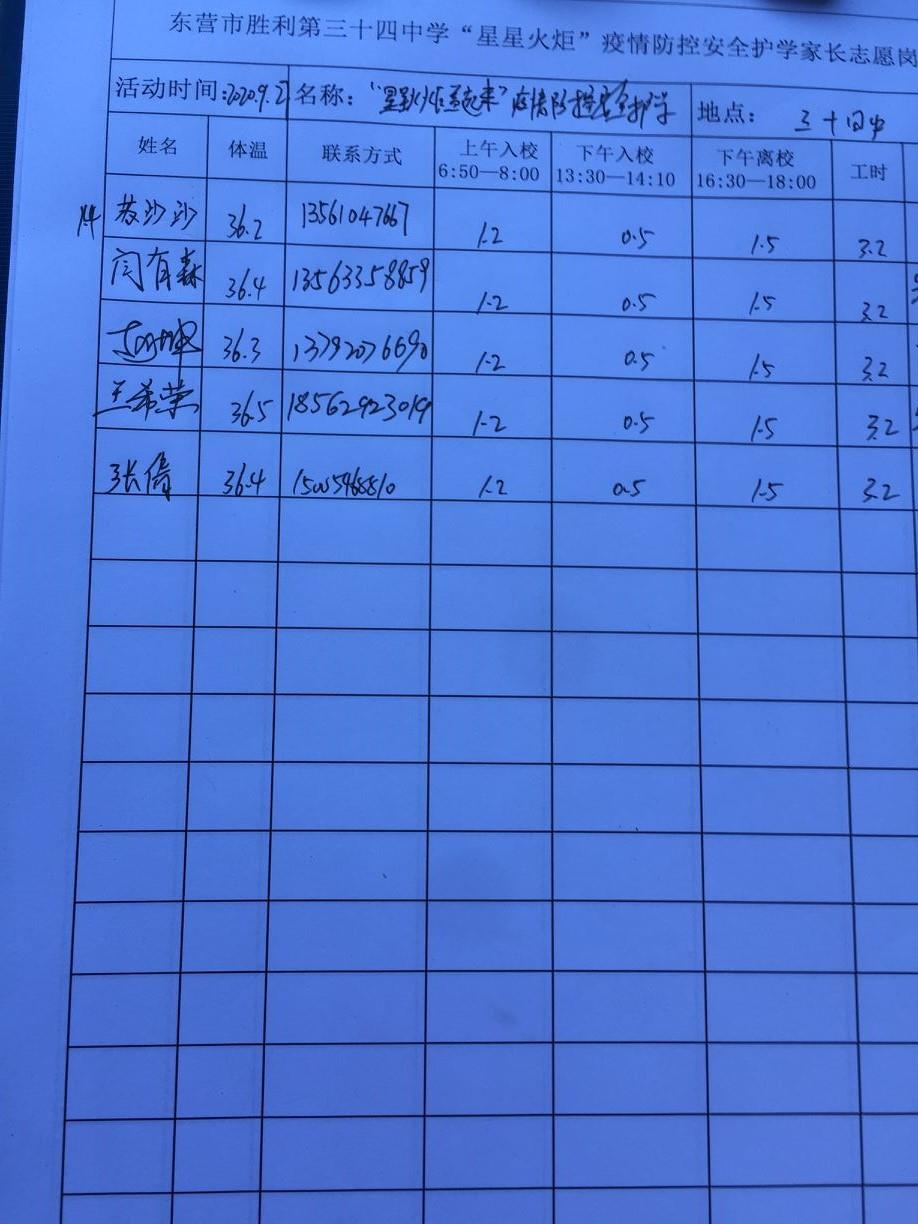 东营市胜利第三十四中学“星星火炬”疫情防控安全护学家长志愿岗
活动时间:2020.9.2 名称: 疫情防控安全护学 地点: 三十四中
姓名 体温 联系方式 上午入校 6:50—8:00 下午入校 13:30—14:10 下午离校 16:30—18:00 工时
苏沙沙 36.2 13561047667 1.2 0.5 1.5 3.2
闫有森 36.4 13563358859 1.2 0.5 1.5 3.2
36.3 13792076690 1.2 0.5 1.5 3.2
王希荣 36.5 18562923019 1.2 0.5 1.5 3.2
张倩 36.4 1.2 0.5 1.5 3.2